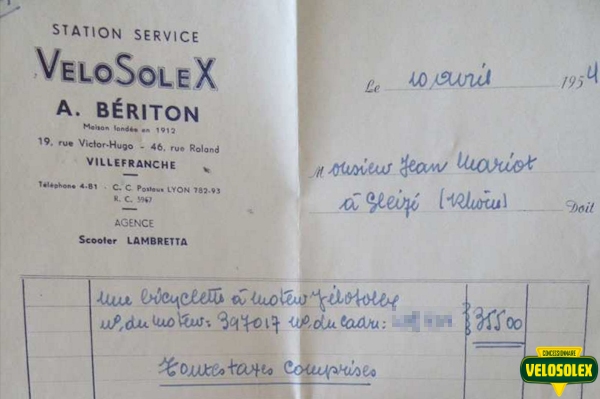 STATION SERVICE
VELOSOLEX
A. BÉRITON
Maison fondée en 1912
19, rue Victor-Hugo - 46, rue Roland
VILLEFRANCHE
Téléphone 4-81 - C. C. Postaux LYON 782-93
R. C. 5967
AGENCE
Scooter LAMBRETTA
Le 10 Avril 1954
Monsieur Jean Mariot
à Gleizé (Rhône) Doit
une bicyclette à moteur Vélosolex
no. du moteur: 397017 no. du cadre: 35500
Toutes taxes comprises
CONCESSIONNAIRE
VELOSOLEX